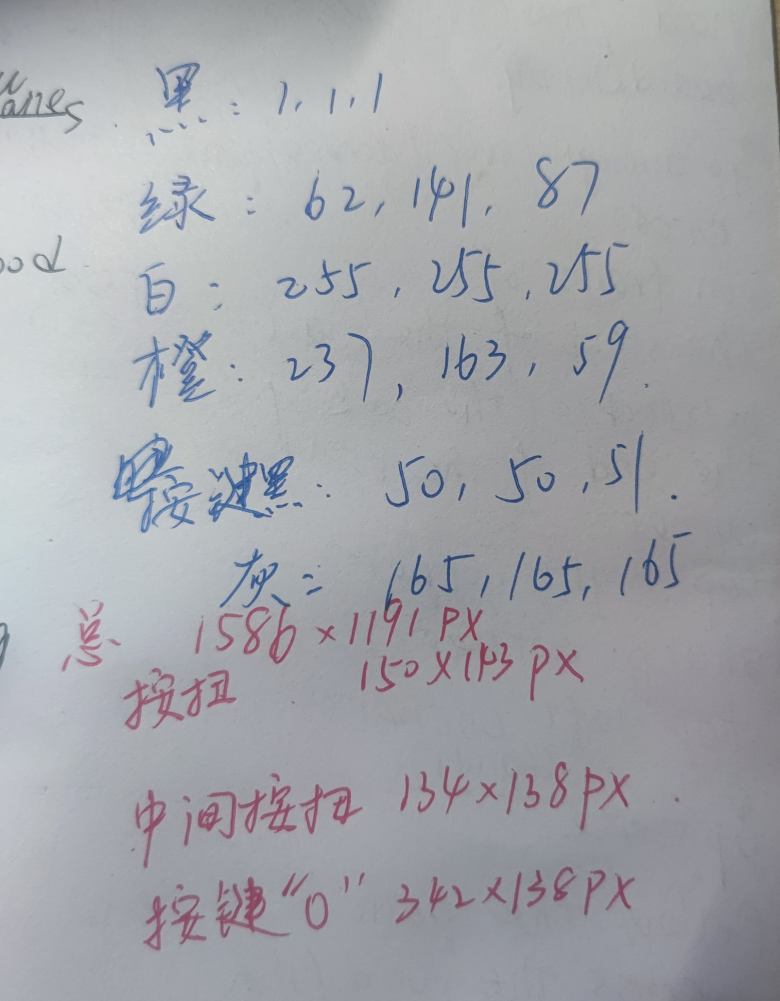 黑：1, 1, 1
绿：62, 141, 87
白：255, 255, 255
橙：237, 163, 59.
按键黑：50, 50, 51.
灰：165, 165, 165
总 1586×1191 PX
按扭 150×143 PX
中间按扭 134×138 PX
按键“0” 342×138 PX